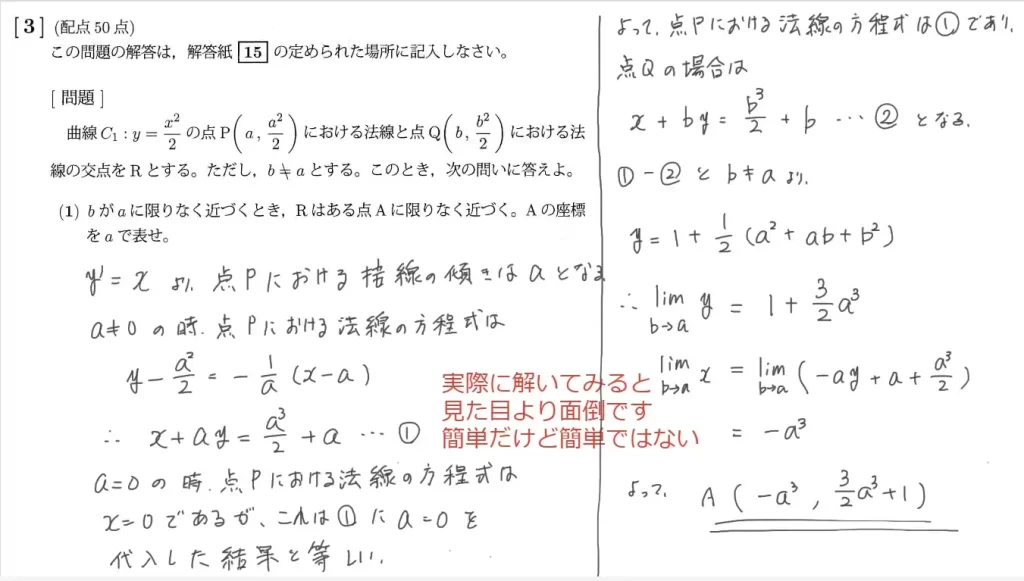 [3] (配点50点)
この問題の解答は,解答紙 15 の定められた場所に記入しなさい。
[問題]
曲線 C₁ : y = x²/2 の点 P(a, a²/2) における法線と点 Q(b, b²/2) における法
線の交点を R とする。ただし,b ≠ a とする。このとき,次の問いに答えよ。
(1) b が a に限りなく近づくとき,R はある点 A に限りなく近づく。A の座標
を a で表せ。
y' = x より, 点Pにおける接線の傾きは a となる
a≠0 の時. 点Pにおける法線の方程式は
y - a²/2 = - 1/a (x-a)
∴ x + ay = a³/2 + a … ①
a=0 の時. 点Pにおける法線の方程式は
x=0 であるが、これは ① に a=0 を
代入した結果と等しい.
実際に解いてみると
見た目より面倒です
簡単だけど簡単ではない
よって, 点Pにおける法線の方程式は ① であり,
点Qの場合は
x + by = b³/2 + b … ② となる.
① - ② と b≠a より,
y = 1 + 1/2 (a² + ab + b²)
∴ lim b→a y = 1 + 3/2 a³
lim b→a x = lim b→a (-ay + a + a³/2)
= -a³
よって, A (-a³, 3/2 a³ + 1)